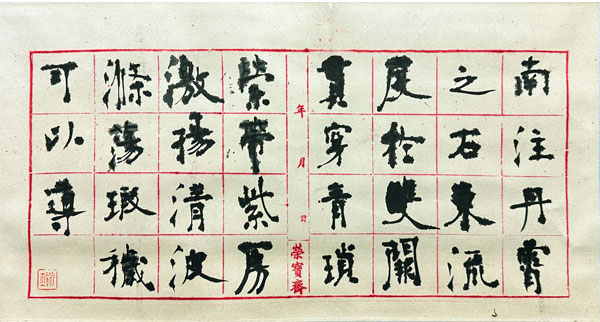 南注丹霄
之右東流
度於雙闕
貫穿青瑣
年月日
榮寶齋
縈帶紫房
激揚清波
滌蕩瑕穢
可以導